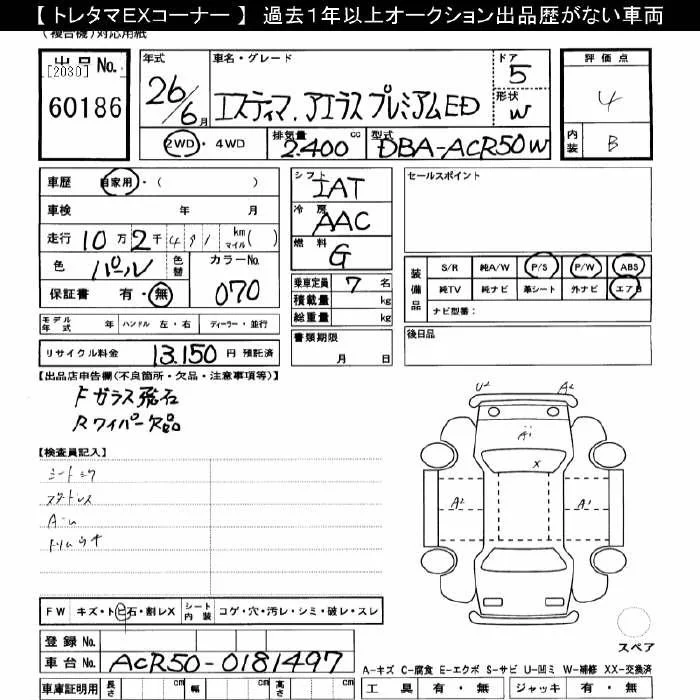 【 トレタマEXコーナー 】 過去1年以上オークション出品歴がない車両
(複合機)対応用紙
出品No.
[2030]
60186
年式
26/6月
車名・グレード
エスティマ.アエラスプレミアムED
ドア
5
形状
W
2WD・4WD
排気量
2.400 cc
型式
DBA-ACR50W
評価点
4
内装
B
車歴 自家用・( )
車検 年 月
走行 10万2千491 km マイル( )
色 パール 色替 カラーNo. 070
保証書 有・無
モデル年式 年 ハンドル 左・右 ディーラー・並行
リサイクル料金 13.150 円 預託済
シフト IAT
冷房 AAC
燃料 G
乗車定員 7 名
積載量 kg
総重量 kg
書類期限
月 日
セールスポイント
装備品
S/R 純A/W P/S P/W ABS
純TV 純ナビ 革シート 外ナビ エアB
ナビ型番:
後日品
【出品店申告欄(不良箇所・欠品・注意事項等)】
Fガラス飛石
Rワイパー欠品
【検査員記入】
FW キズ・ト飛石・割レX シート内装 コゲ・穴・汚レ・シミ・破レ・スレ
登録No.
車台No. ACR50-0181497
車庫証明用 長さ cm 幅 cm 高さ cm
U2 A2
A1
X
A2 A1
スペア
A-キズ C-腐食 E-エクボ S-サビ U-凹ミ W-補修 XX-交換済
工具 有・無 ジャッキ 有・無